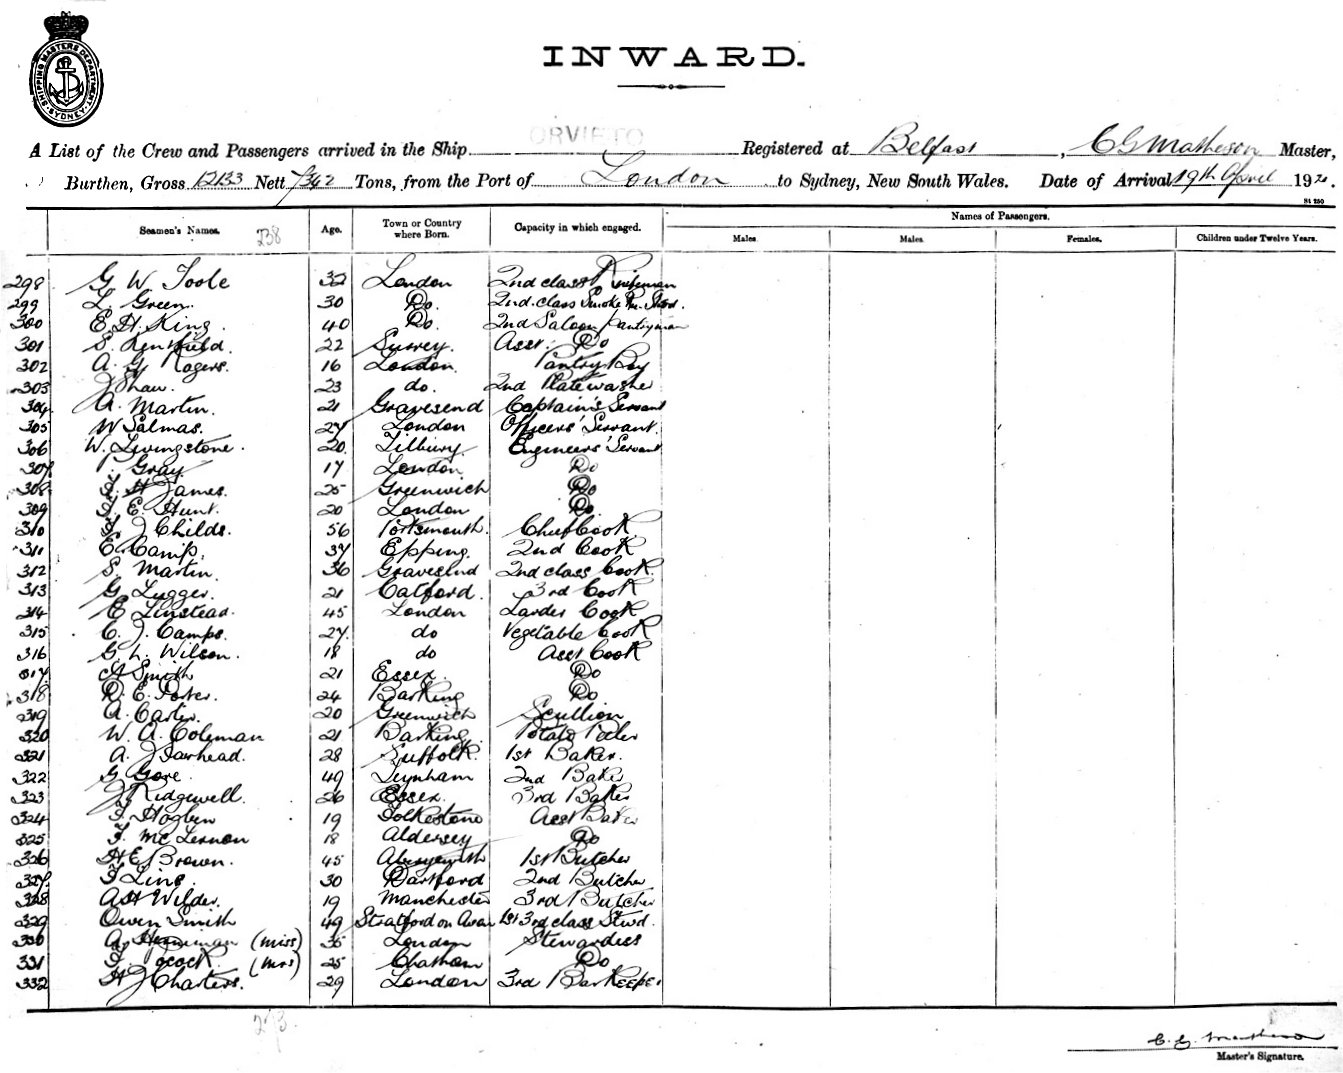 SHIPPING MASTERS DEPARTMENT · SYDNEY ·
INWARD.
ORVIETO
A List of the Crew and Passengers arrived in the Ship Registered at Belfast, C G Matheson Master,
Burthen, Gross 12133 Nett 7342 Tons, from the Port of London to Sydney, New South Wales. Date of Arrival 19th April 192
St 250
Seamen's Names. 238 Age. Town or Country where Born. Capacity in which engaged. Names of Passengers.
Males Males. Females. Children under Twelve Years.
298 G W Toole 32 London 2nd class
299 L. Green. 30 Do. 2nd. class Smoke Rm. Stwd.
300 E. H. King. 40 Do. 2nd Saloon Pantryman
301 S. Kenfield. 22 Surrey. Asst. Do
302 A. G. Rogers. 16 London. Pantry Boy
303 J Shaw. 23 do. 2nd Platewasher
304 A. Martin. 21 Gravesend Captain's Servant
305 W Salmas. 27 London Officers' Servant.
306 W. Livingstone. 20. Tilbury. Engineers' Servant
307 Gray 17 London Do
308 H James. 25 Greenwich Do
309 E. Hunt. 20 London Do
310 J Childs. 56 Portsmouth. Chief Cook
311 E. Camp. 37 Epping 2nd Cook
312 S. Martin. 36 Gravesend 2nd class Cook
313 G Lugger. 21 Catford. 3rd Cook
314 E Linstead. 45 London Larder Cook
315 C. J. Camps. 27. do Vegetable Cook
316 G L. Wilson. 18 do Asst Cook
317 A Smith 21 Essex. Do
318 R. E. Porter. 24 Barking Do
319 A. Carter. 20 Greenwich Scullion
320 W. A. Coleman 21 Barking Potato Peeler
321 A. J Fairhead. 28 Suffolk. 1st Baker.
322 G Gore. 49 Teynham 2nd Baker
323 J Ridgewell. 26 Essex. 3rd Baker
324 F. Hogben 19 Folkestone Asst Baker
325 F. McLernon 18 Aldersey do
326 H E Brown. 45 1st Butcher
327. F Line. 30 Dartford 2nd Butcher
328 A H Wilder. 19 Manchester 3rd Butcher
329 Owen Smith 49 Stratford on Avon 1st 3rd class Stwd.
330 A. (Miss) 35 London Stewardess
331 (Mrs) 25 Chatham Do
332 H J Charters. 29 London 3rd BarKeeper
273.
C. G. Matheson
Master's Signature.